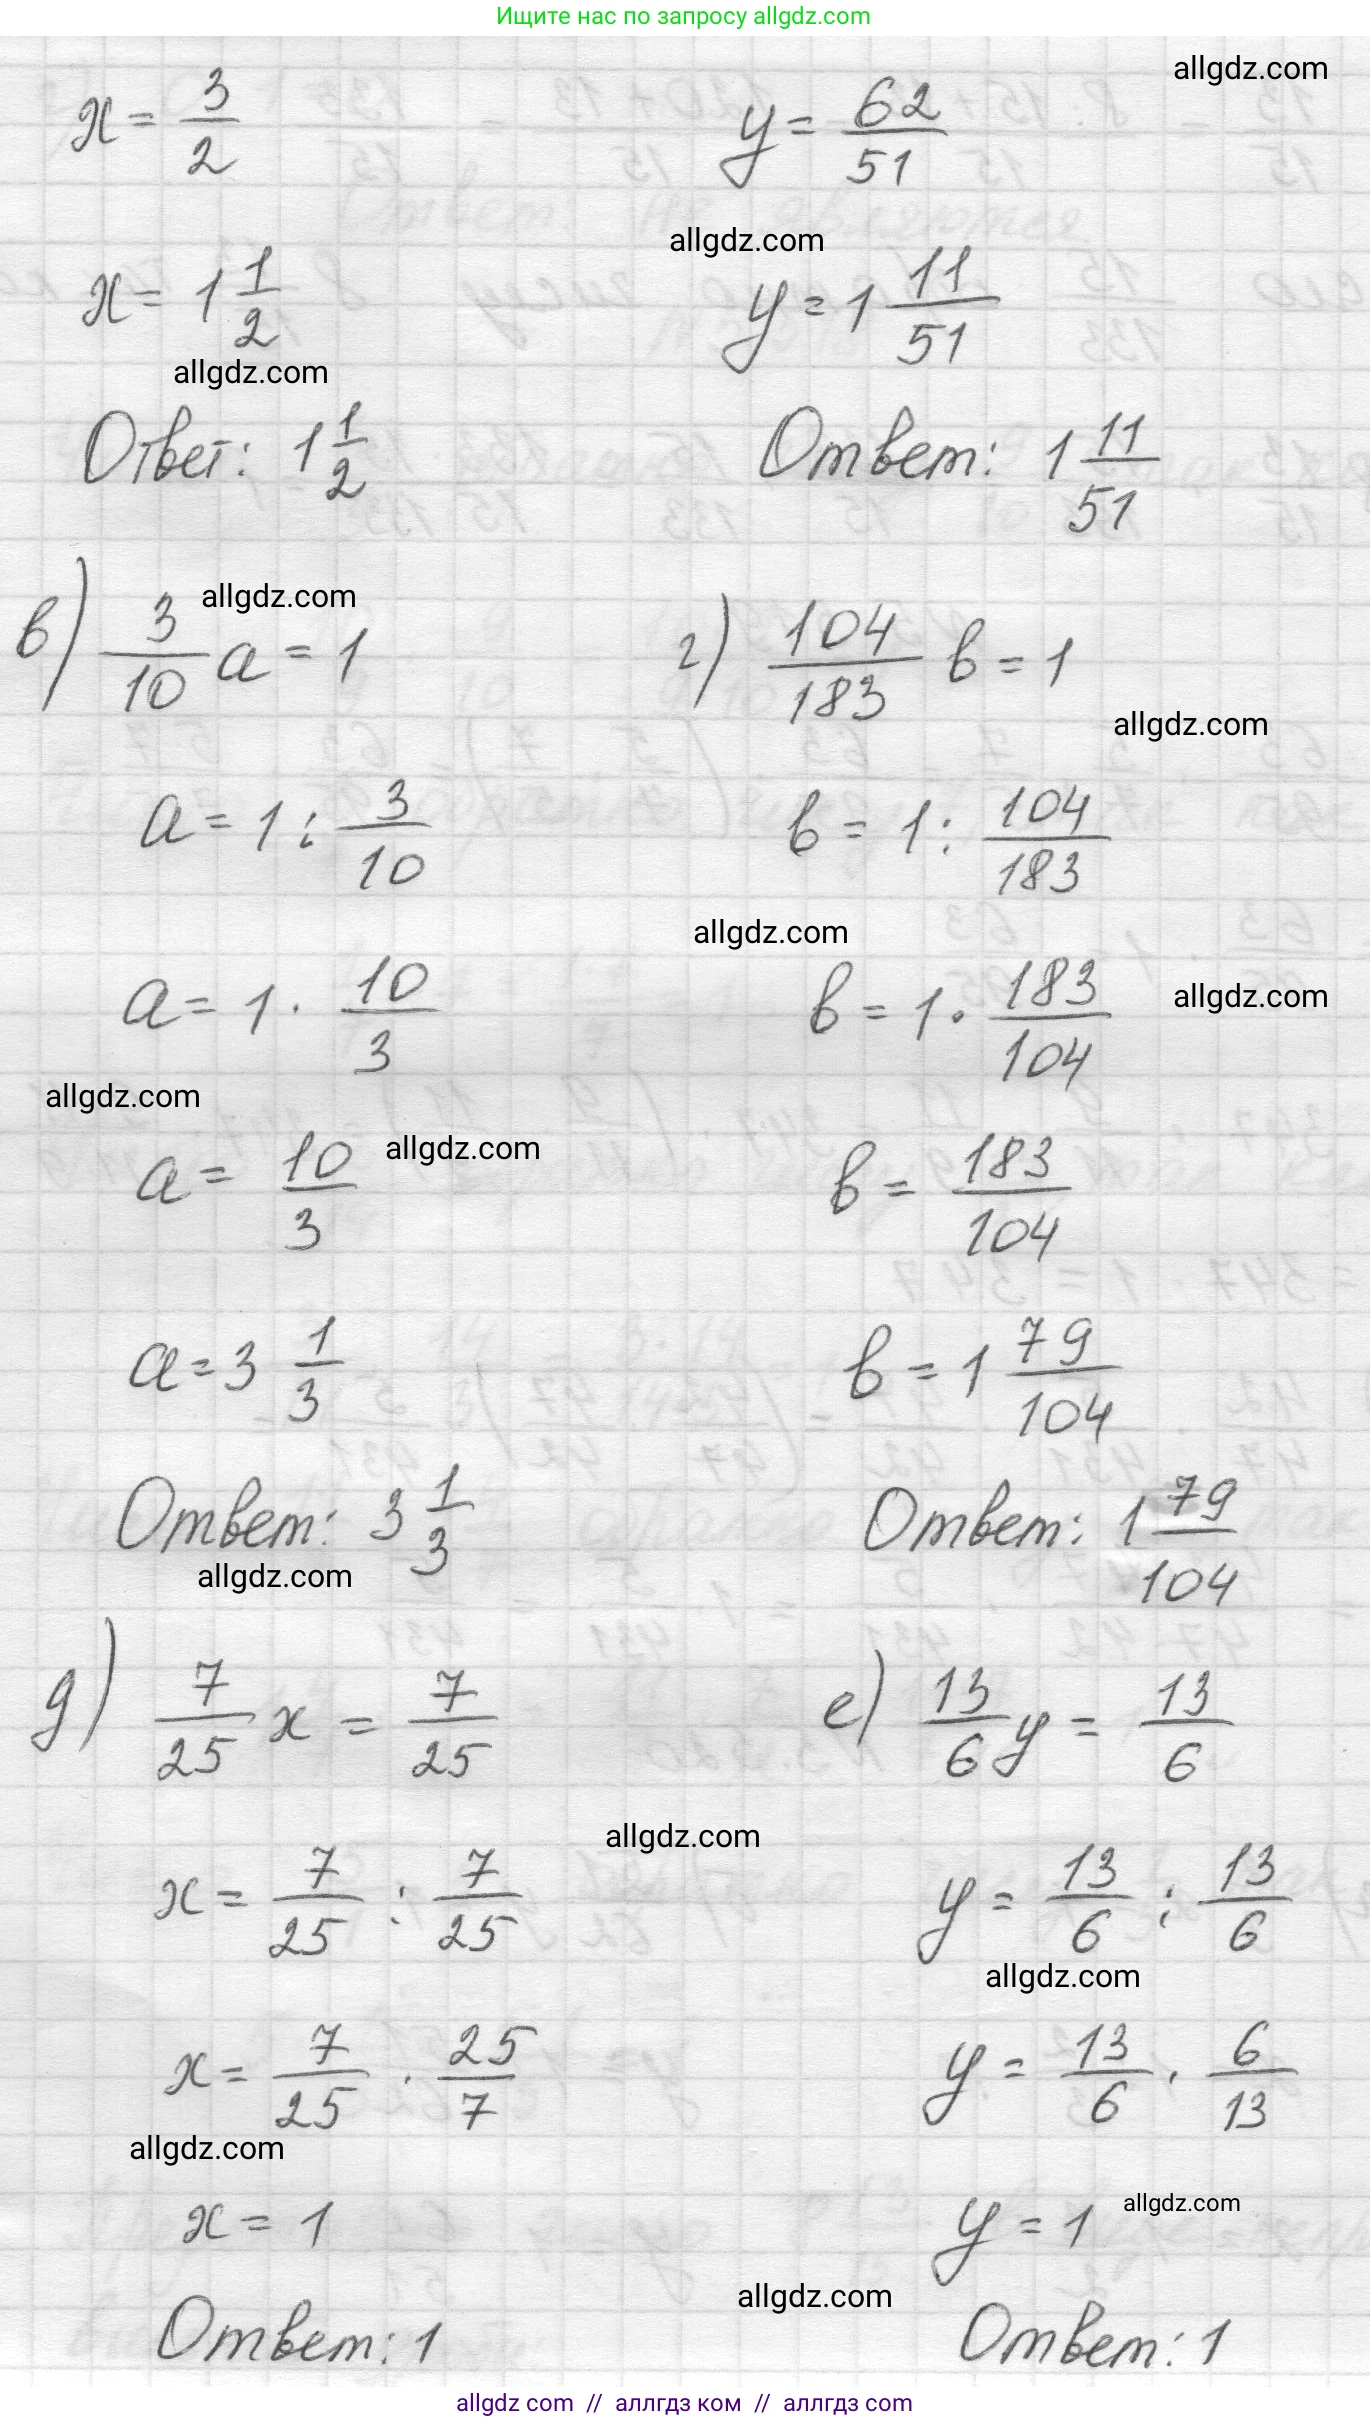 Ищите нас по запросу allgdz.com
allgdz.com
x = 3/2
y = 62/51
allgdz.com
x = 1 1/2
y = 1 11/51
allgdz.com
Ответ: 1 1/2
Ответ: 1 11/51
allgdz.com
в) 3/10 a = 1
г) 104/183 в = 1
allgdz.com
a = 1 : 3/10
в = 1 : 104/183
allgdz.com
a = 1 · 10/3
в = 1 · 183/104
allgdz.com
allgdz.com
allgdz.com
a = 10/3
в = 183/104
a = 3 1/3
в = 1 79/104
Ответ: 3 1/3
Ответ: 1 79/104
allgdz.com
д) 7/25 x = 7/25
е) 13/6 y = 13/6
allgdz.com
x = 7/25 : 7/25
y = 13/6 : 13/6
allgdz.com
x = 7/25 · 25/7
y = 13/6 · 6/13
allgdz.com
x = 1
y = 1
allgdz.com
allgdz.com
Ответ: 1
Ответ: 1
allgdz com // аллгдз ком // аллгдз com